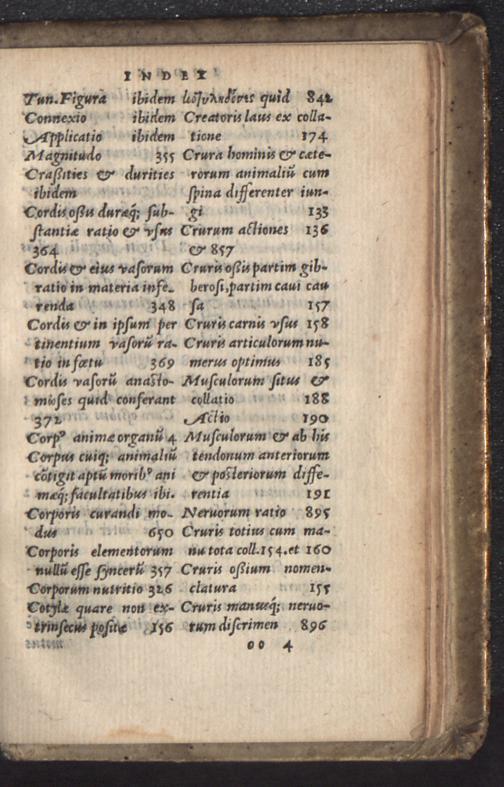 INDEX
Tun. Figura ibidem
Connexio ibidem
Applicatio ibidem
Magnitudo 355
Craßities & durities
ibidem
Cordis oßis duræq; sub-
stantiæ ratio & vsus
364
Cordis & eius vasorum
ratio in materia infe-
renda 348
Cordis & in ipsum per
tinentium vasorũ ra-
tio in fœtu 369
Cordis vasorũ anasto-
mωses quid conferant
372
Corpꝰ animæ organũ 4
Corpus cuiq; animaliũ
cõtigit aptũ moribꝰ ani
mæq; facultatibus ibi.
Corporis curandi mo-
dus 650
Corporis elementorum
nullũ esse syncerũ 357
Corporum nutritio 326
Cotylæ quare non ex-
trinsecus positæ 156
quid 842
Creatoris laus ex colla-
tione 174
Crura hominis & cæte-
rorum animaliũ cum
spina differenter iun-
gi 133
Crurum actiones 136
& 857
Cruris oßis partim gib-
berosi, partim caui cau
sa 157
Cruris carnis vsus 158
Cruris articulorum nu-
merus optimus 185
Musculorum situs &
collatio 188
Actio 190
Musculorum & ab his
tendonum anteriorum
& posteriorum diffe-
rentia 191
Neruorum ratio 895
Cruris totius cum ma-
nu tota coll. 154. et 160
Cruris oßium nomen-
clatura 155
Cruris manusq; neruo-
rum discrimen 896
oo 4